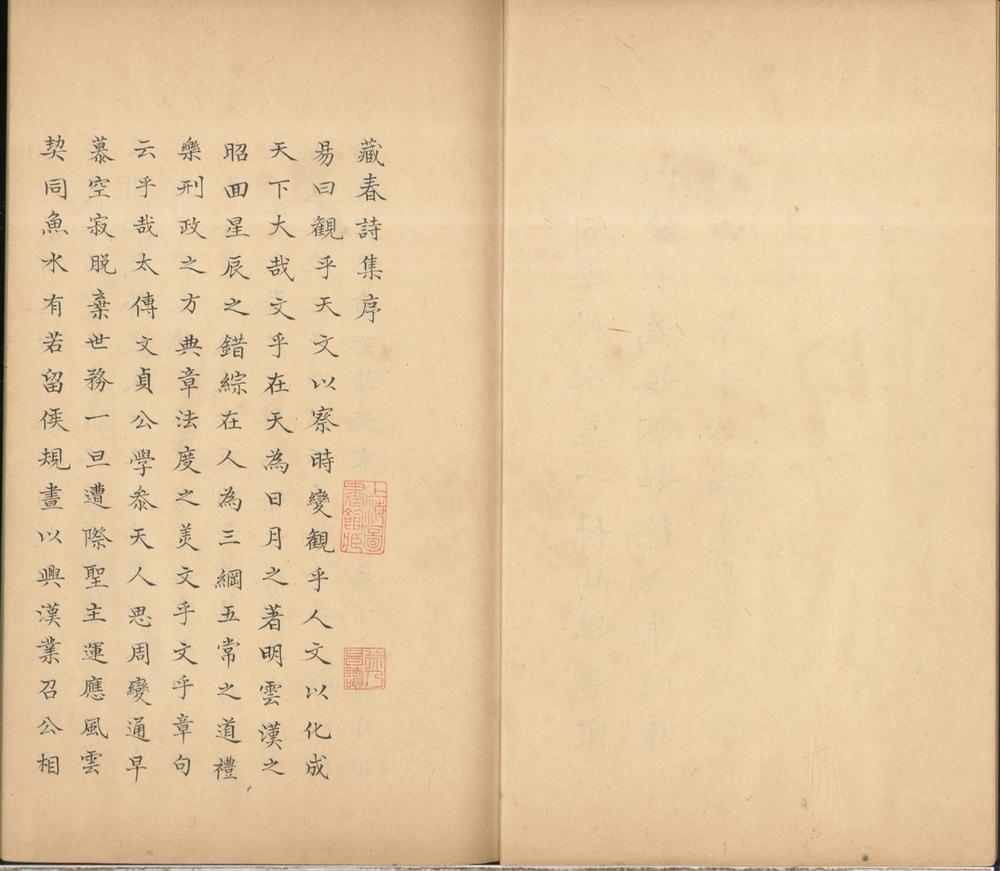 藏春詩集序
易曰觀乎天文以察時變觀乎人文以化成
天下大哉文乎在天為日月之著明雲漢之
昭回星辰之錯綜在人為三綱五常之道禮
樂刑政之方典章法度之美文乎文乎章句
云乎哉太傅文貞公學叅天人思周變通早
慕空寂脫棄世務一旦遭際聖主運應風雲
契同魚水有若留侯規畫以興漢業召公相
上海圖書館藏
徐乃昌讀